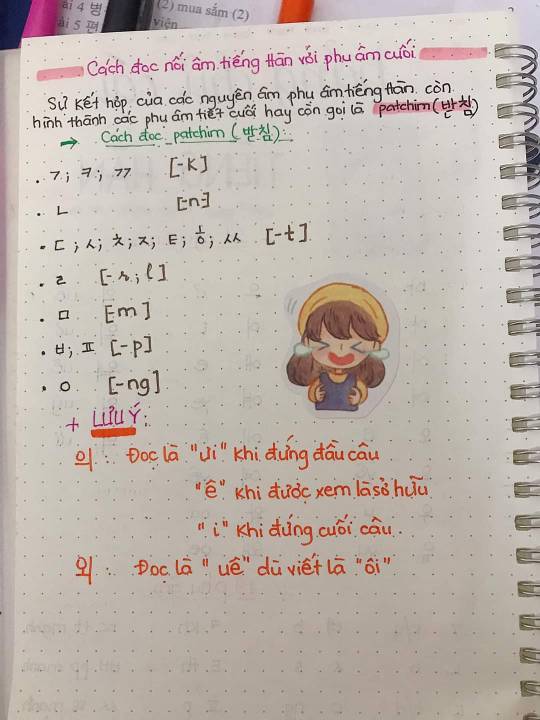 ài 4 병
(2) mua sắm (2)
ài 5 편
viện
Cách đọc nối âm tiếng Hàn với phụ âm cuối
Sự kết hợp của các nguyên âm phụ âm tiếng Hàn còn
hình thành các phụ âm tiết cuối hay còn gọi là patchim (받침)
→ Cách đọc patchim (받침):
. ㄱ; ㅋ; ㄲ [-k]
. ㄴ [-n]
. ㄷ; ㅅ; ㅊ; ㅈ; ㅌ; ㅎ; ㅆ [-t]
. ㄹ [-r; l]
. ㅁ [m]
. ㅂ; ㅍ [-p]
. ㅇ [-ng]
+ LƯU Ý:
의 : Đọc là "ưi" khi đứng đầu câu
"ê" khi được xem là sở hữu
"i" khi đứng cuối câu.
외 : Đọc là "uê" dù viết là "ôi"